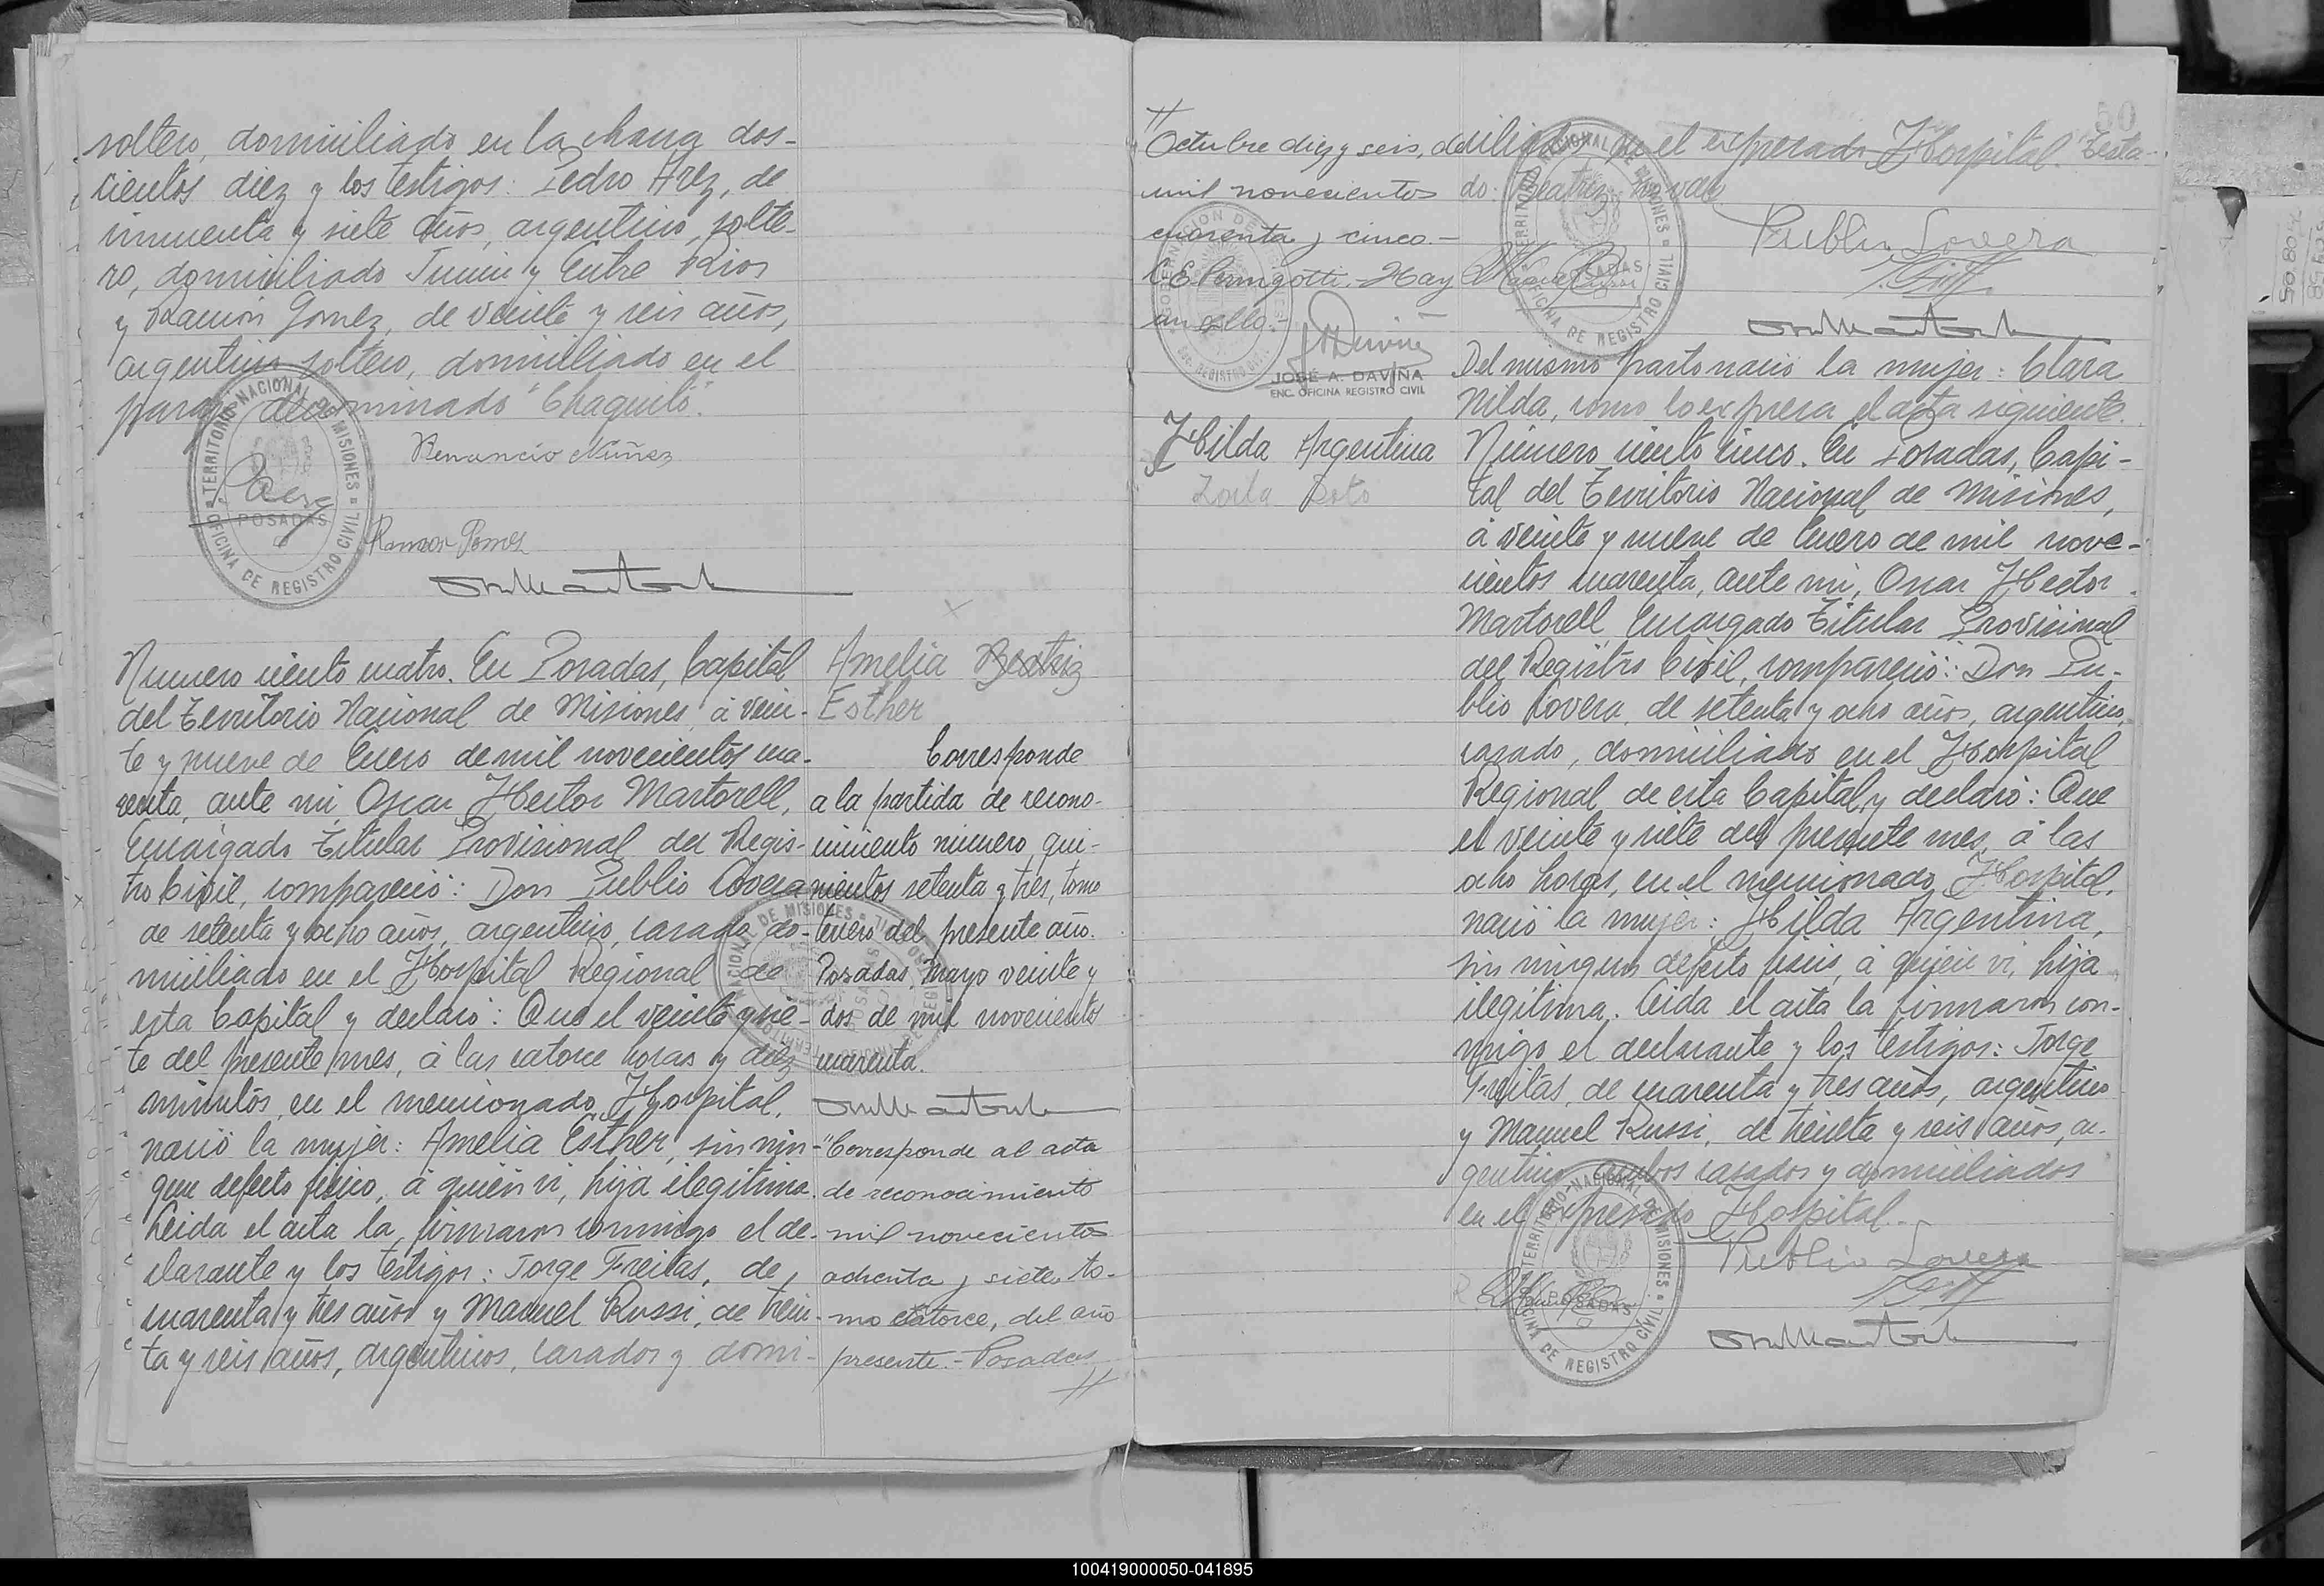 soltero, domiciliado en la chacra dos-
cientos diez y los testigos: Pedro Arez, de
cincuenta y siete años, argentino, solte-
ro, domiciliado Junin y Entre Rios
y Ramón Gomez, de veinte y seis años,
argentino soltero, domiciliado en el
paraje denominado "Chaquito".
TERRITORIO NACIONAL DE MISIONES
OFICINA DE REGISTRO CIVIL
POSADAS
Venancio Nuñez
Paez
Ramon Gomez
Numero ciento cuatro. En Posadas, Capital
del Territorio Nacional de Misiones, á vein-
te y nueve de Enero de mil novecientos cua-
renta, ante mi, Oscar Hector Martorell,
Encargado Titular Provisional del Regis-
tro Civil, compareció: Don Publio Lovera
de setenta y ocho años, argentino, casado do-
miciliado en el Hospital Regional de
esta Capital y declaró: Que el veinte y sie-
te del presente mes, á las catorce horas y diez
minutos, en el mencionado Hospital,
nació la mujer: Amelia Esther, sin nin-
gun defecto fisico, á quien vi, hija ilegitima.
Leida el acta la firmaron conmigo el de-
clarante y los testigos: Jorge Freitas, de
cuarenta y tres años y Manuel Russi, de trein-
ta y seis años, argentinos, casados y domi-
Amelia Beatriz
Esther
Corresponde
a la partida de recono-
cimiento numero qui-
nientos setenta y tres, tomo
tercero del presente año.
Posadas, Mayo veinte y
dos de mil novecientos
cuarenta.
"Corresponde al acta
de reconocimiento
mil novecientos
ochenta y siete, to-
mo catorce, del año
presente.- Posadas,
//
//
Octubre diez y seis, de
mil novecientos
cuarenta y cinco.-
Hay
un sello.-
JOSÉ A. DAVIÑA
ENC. OFICINA REGISTRO CIVIL
50
ciliados en el expresado Hospital. Testa-
do: Beatriz, no vale.
TERRITORIO NACIONAL DE MISIONES
OFICINA DE REGISTRO CIVIL
POSADAS
Publio Lovera
Del mismo parto nació la mujer: Clara
Nilda, como lo expresa el acta siguiente.
Hilda Argentina
Numero ciento cinco. En Posadas, Capi-
tal del Territorio Nacional de Misiones,
á veinte y nueve de Enero de mil nove-
cientos cuarenta, ante mi, Oscar Hector
Martorell, Encargado Titular Provisional
del Registro Civil, compareció: Don Pu-
blio Lovera, de setenta y ocho años, argentino,
casado, domiciliado en el Hospital
Regional de esta Capital, y declaró: Que
el veinte y siete del presente mes, á las
ocho horas, en el mencionado Hospital,
nació la mujer: Hilda Argentina,
sin ningun defecto fisico, á quien vi, hija
ilegitima. Leida el acta la firmaron con-
migo el declarante y los testigos: Jorge
Freitas, de cuarenta y tres años, argentino
y Manuel Russi, de treinta y seis años, ar-
gentino, ambos casados y domiciliados
en el expresado Hospital.
Publio Lovera
TERRITORIO NACIONAL DE MISIONES
OFICINA DE REGISTRO CIVIL
POSADAS
100419000050-041895